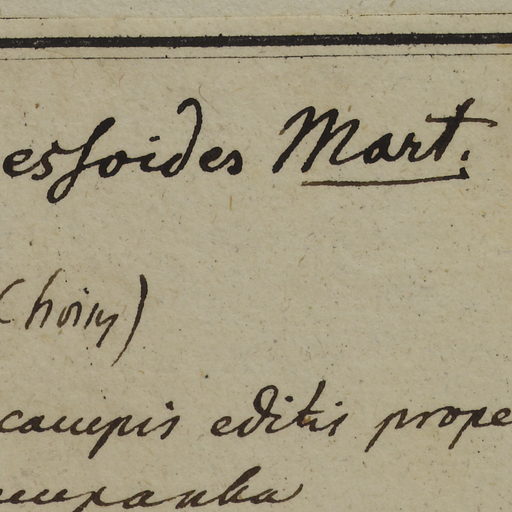 essoides Mart.
(Choisy)
campis editis prope